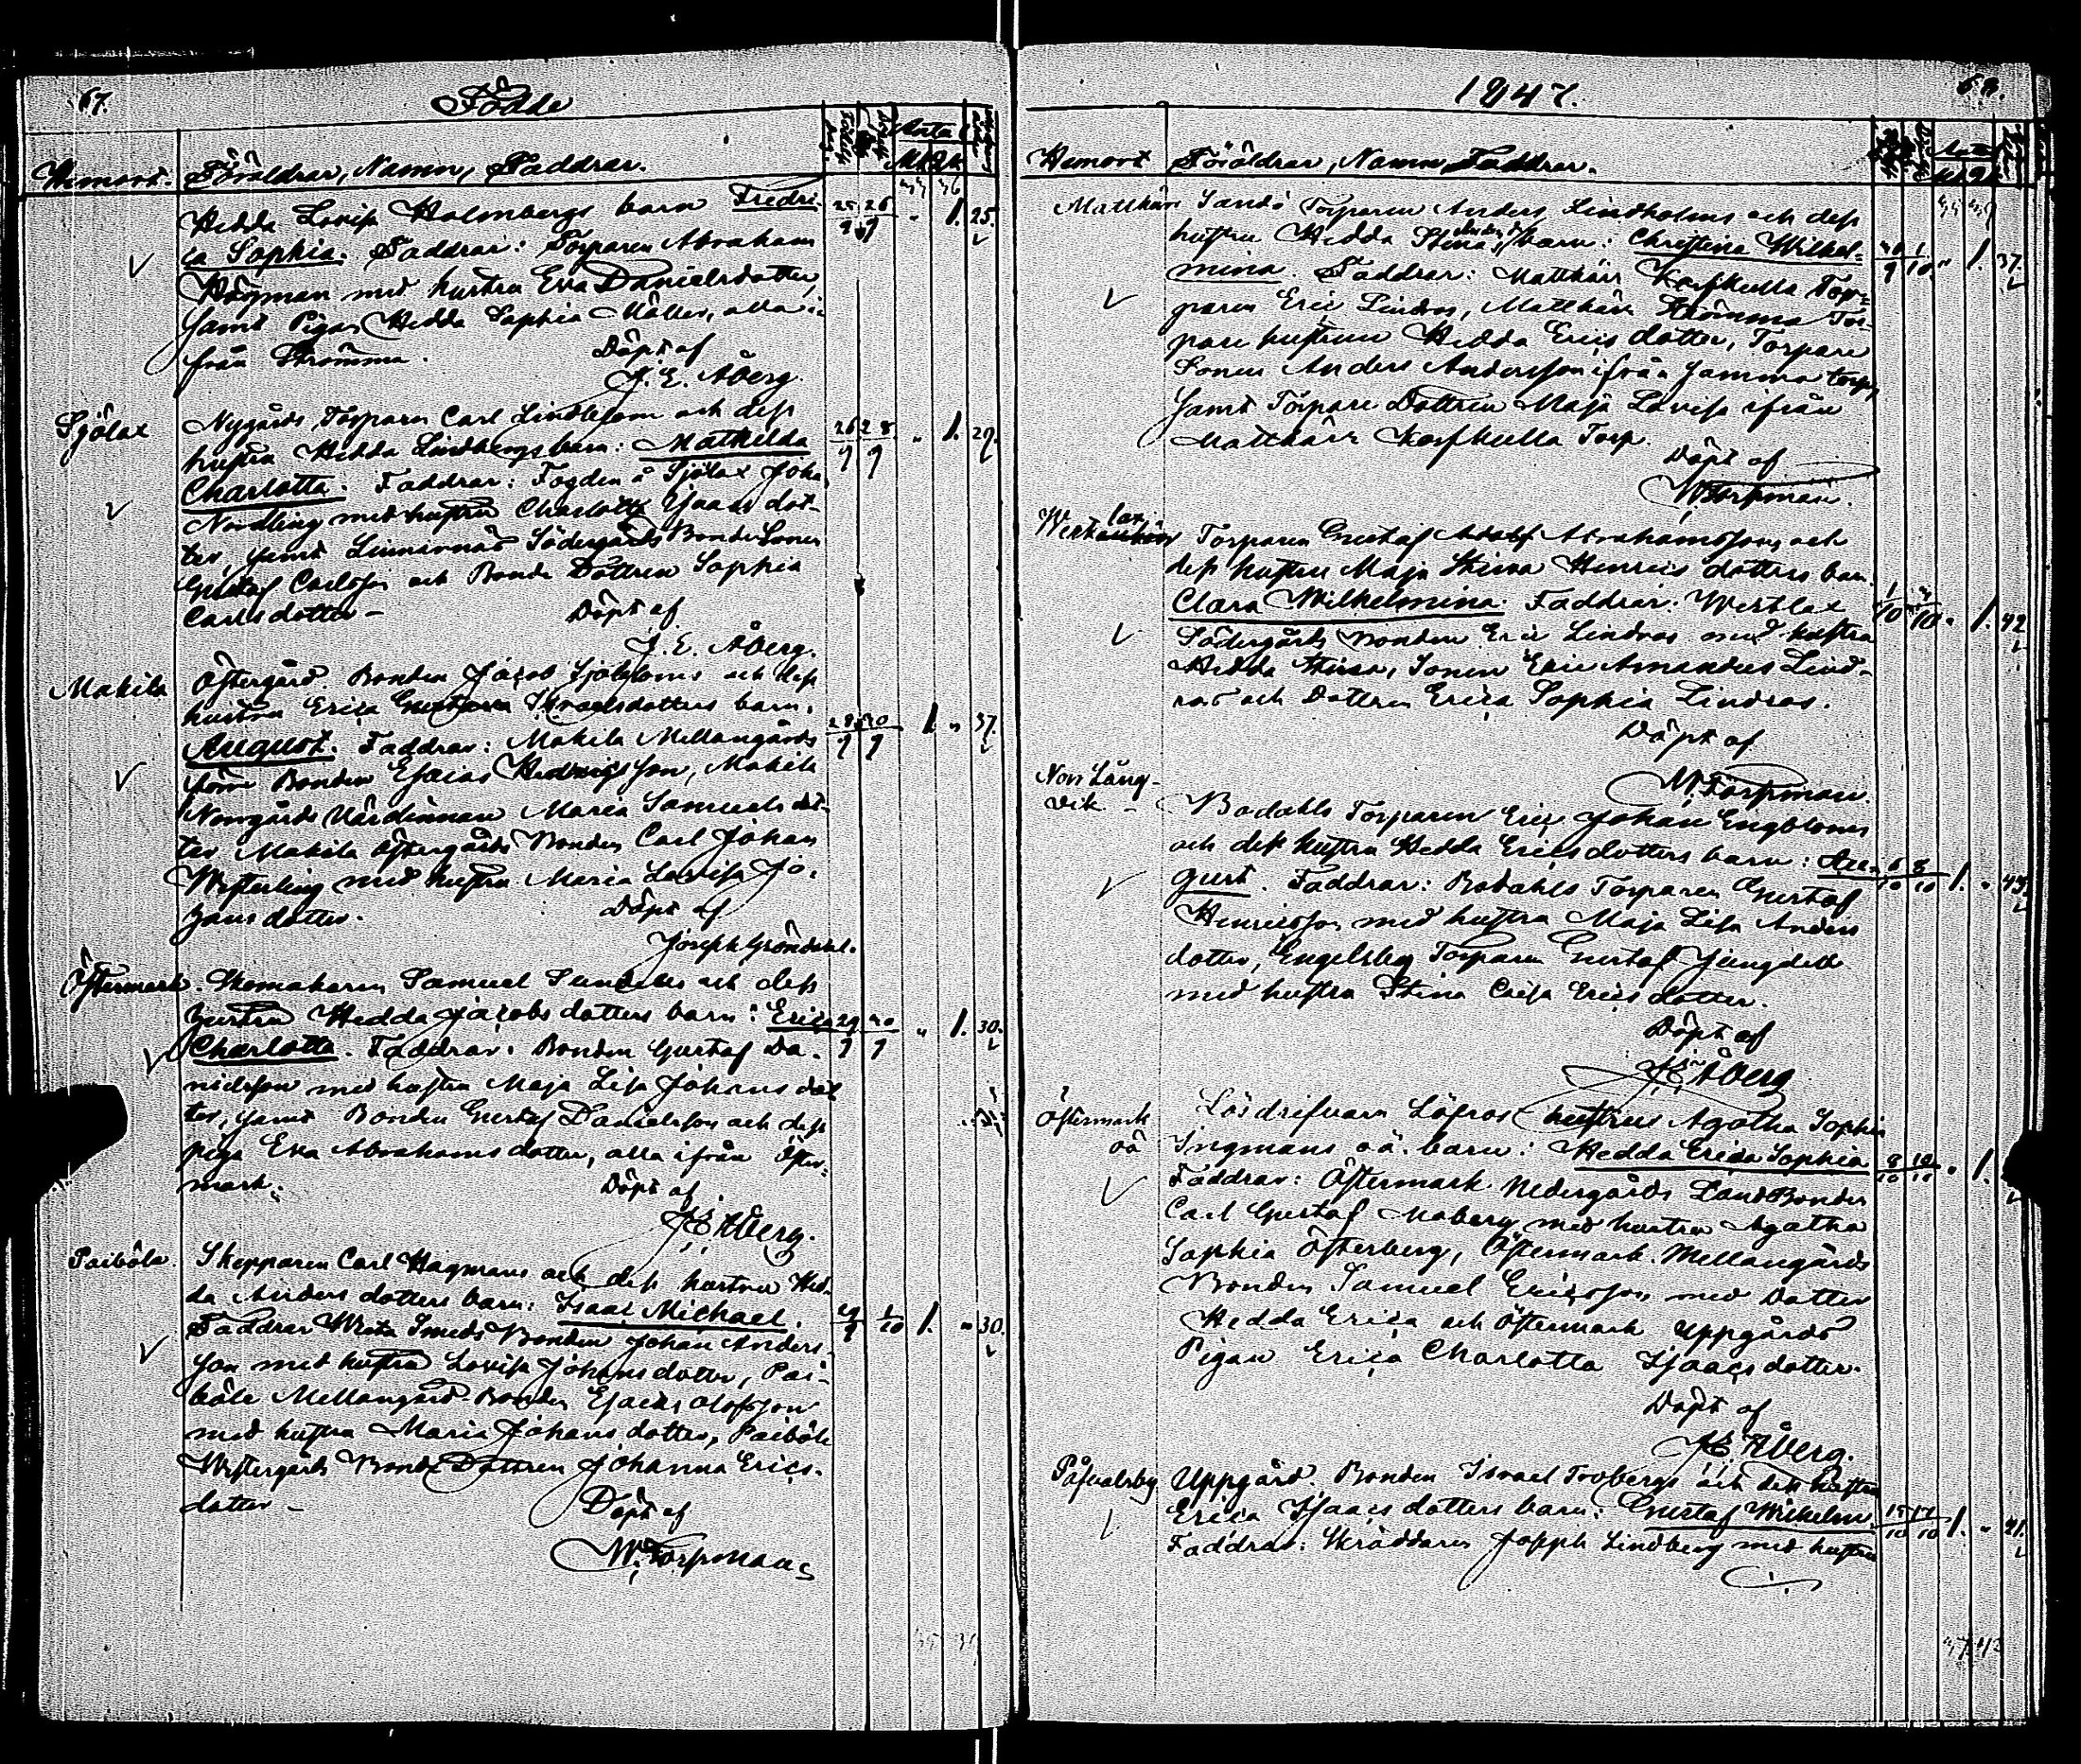 67.
Födde
Hemort. Föräldrar, Namn, Faddrar.
Antal
Hedda Lovisa Holmbergs barn Fredri-
ca Sophia. Faddrar: Torparen Abraham
Högman med hustru Eva Danielsdotter,
samt Pigan Hedda Sophia Möller, alla i-
från Strömma.
Döpt af
J. E. Åberg.
25/9 26/9 " 1. 25.
Sjölax
Nygårds Torparen Carl Lindblom och dess
hustru Hedda Lindbergs barn: Mathilda
Charlotta. Faddrar: Fogden å Sjölax Joh:
Nordling med hustru Charlotta Isaacs dot-
ter, samt Linnarnäs Södergårds Bonde Sonen
Gustaf Carlsson och Bonde Dottren Sophia
Carlsdotter –
Döpt af
J. E. Åberg.
26/9 28/9 " 1. 29.
Makila
Östergård. Bonden Jacob Sjöbloms och dess
hustru Erica Israelsdotters barn.
August. Faddrar: Makila Mellangårds
före Bonden Esaias Hedvigsson, Makila
Norrgårds Värdinnan Maria Samuels dot-
ter Makila Östergårds Bonden Carl Johan
Westerling med hustru Maria Lovisa Jo-
hans dotter.
Döpt af
Joseph Gröndahl.
28/9 30/9 1. " 37.
Östermark.
Skomakaren Samuel och dess
hustru Hedda Jacobs dotters barn: Erica
Charlotta. Faddrar: Bonden Gustaf Da-
nielsson med hustru Maja Lisa Johans dot
ter, samt Bonden Gustaf Danielsson och dess
piga Eva Abrahams dotter, alla ifrån Öster-
mark.
Döpt af
J E Åberg.
29/9 30/9 " 1. 30.
Paiböle.
Skepparen Carl Hagmans och dess hustru Hed-
da Anders dotters barn: Isaac Michael.
Faddrar Wreta Smeds Bonden Johan Anders-
son med hustru Lovisa Johansdotter, Pai-
böle Mellangård Bonden Esaias Olofsson
med hustru Maria Johans dotter, Paiböle
Westergårds Bonde Dottren Johanna Erics-
dotter –
Döpt af
W. Torpman
29/9 1/10 1. " 30.
1847.
68.
Hemort Föräldrar, Namn Faddrar.
Matthärr
Sandö Torparen Anders Lindholms och dess
hustru Hedda Stina barn: Christina Wilhel-
mina. Faddrar: Matthärr Korskulla Tor-
paren Eric Lindros, Matthärr Strömma Tor-
pare hustrun Hedda Erics dotter, Torpare
Sonen Anders Andersson ifrån samma torp,
samt Torpare Dottren Maja Lovisa ifrån
Matthärr Korskulla Torp.
Döpt af
W Torpman.
30/9 1/10 " 1. 37.
Westlax
Torparen Gustaf Adolf Abrahamssons och
dess hustru Maja Stina Henrics dotters barn
Clara Wilhelmina. Faddrar: Westlax
Södergårds Bonden Eric Lindros med hustru
Hedda Stina, Sonen Eric Amandus Lind-
ros och Dottren Erica Sophia Lindros.
Döpt af
W. Torpman.
1/10 /10 " 1. 42
Norr Lång-
vik –
Bodahls Torparen Eric Johan Engbloms
och dess hustru Hedda Ericsdotters barn: Au-
gust. Faddrar: Bodahls Torparen Gustaf
Henricsson med hustru Maja Lisa Anders
dotter, Engelsby Torparen Gustaf Ljungdell
med hustru Stina Caisa Erics dotter.
Döpt af
J E Åberg
6/10 8/10 1. "
Östermark
oä
Lösdrifvaren Löfros hustrus Agatha Sophia
Ingmans oä. barn: Hedda Erica Sophia
Faddrar: Östermark Nedergårds LandBonden
Carl Gustaf Moberg med hustru Agatha
Sophia Österberg, Östermark Mellangårds
Bonden Samuel Ericsson med Dotter
Hedda Erica och Östermark Uppgårds
Pigan Erica Charlotta Isaacsdotter.
Döpt af
J E Åberg.
8/10 10/10 " 1.
Påfvalsby
Uppgård. Bonden Israel Trobergs och dess hustru
Erica Isaacs dotters barn: Gustaf Wilhelm
Faddrar: Skräddaren Joseph Lindberg med hustru
15/10 17/10 1. " 41.